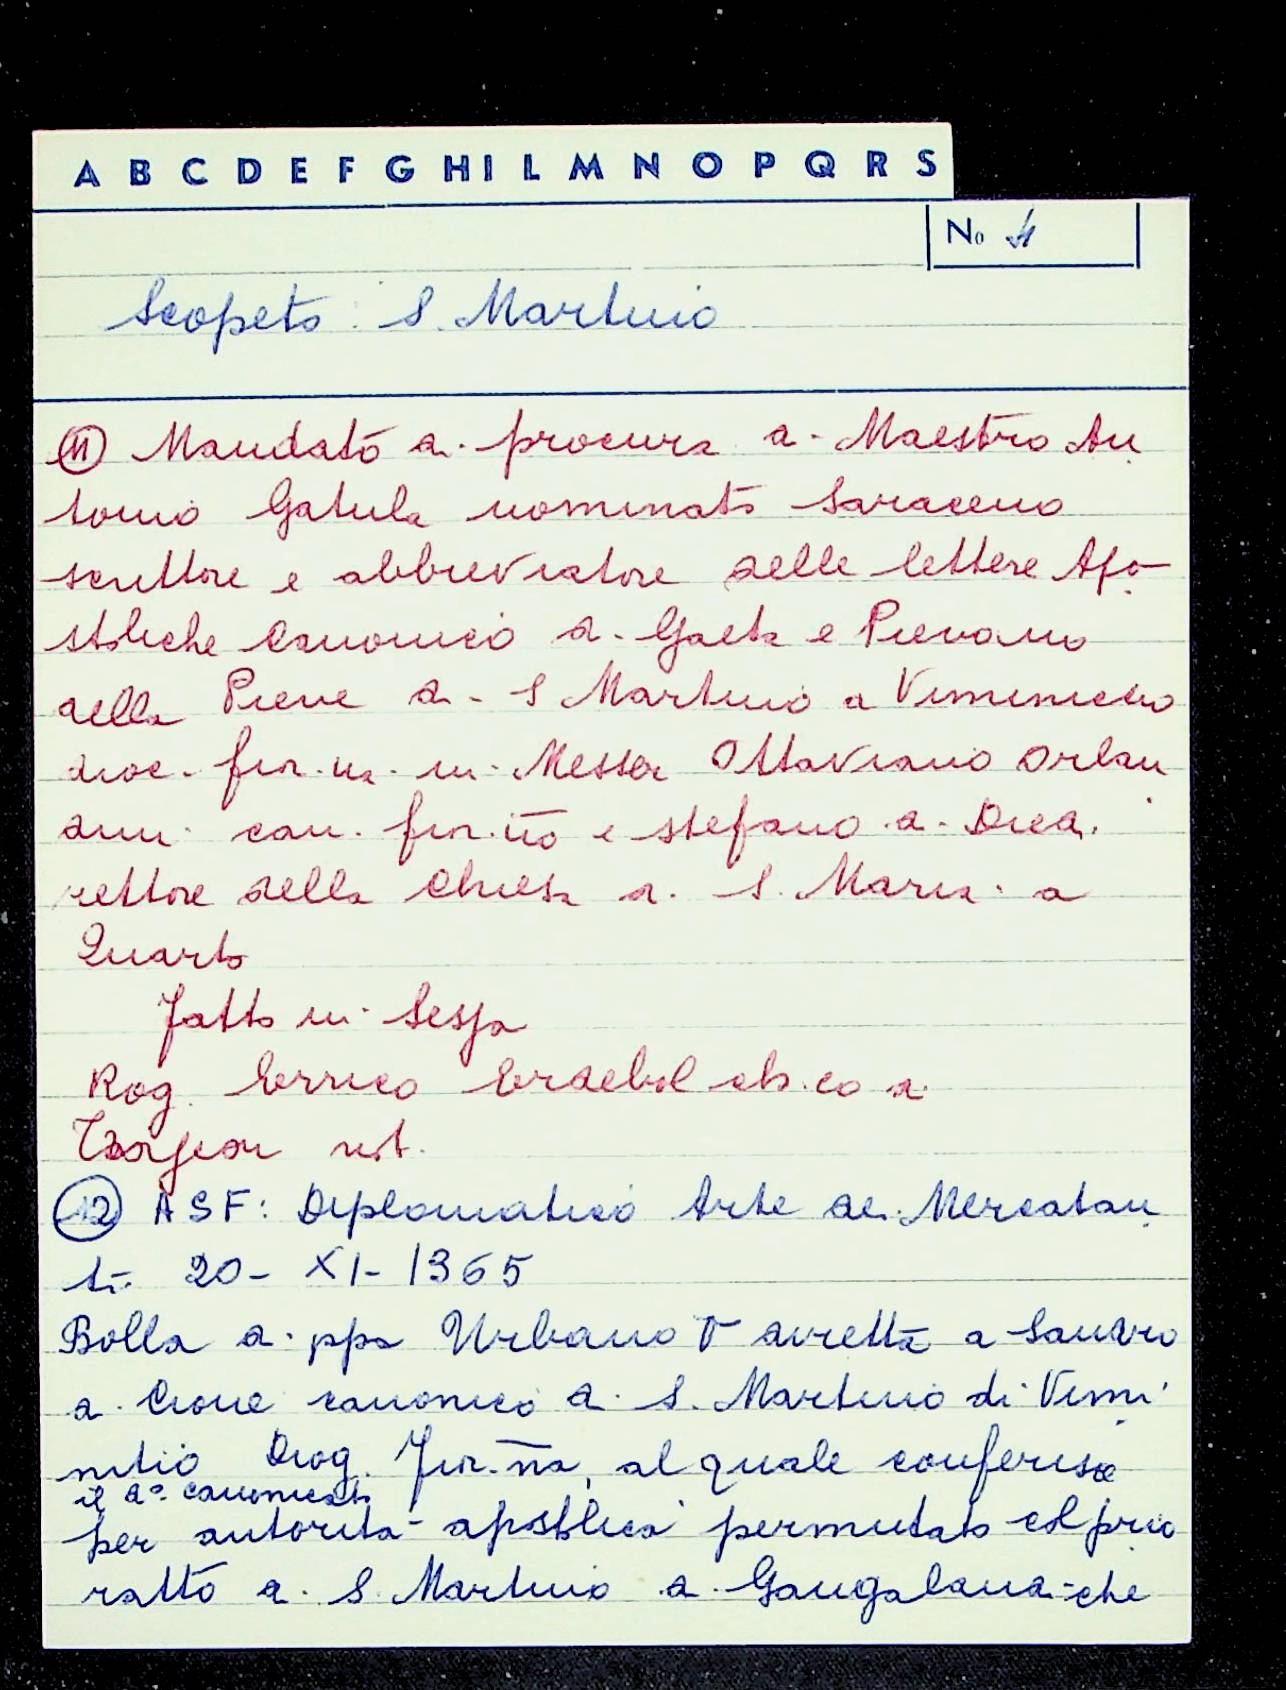 A B C D E F G H I L M N O P Q R S
No 4
Scopeto: S. Martino
11 Mandato di procura di Maestro An
tonio Gatula nominato Saraceno
scrittore e abbreviatore delle lettere Apo-
stoliche Canonico di Gaeta e Pievano
della Pieve di S Martino a
dioc. fior.na in Messer Ottaviano Orlan
dini can. fior.no e Stefano di
rettore della Chiesa di S. Maria a
Quarto
Fatto in Sessa
Rog. Errico
not.
12 ASF: Diplomatico Arte dei Mercatan
ti 20-XI-1365
Bolla di ppa Urbano V diretta a Sandro
di Cione canonico di S. Martino di Vimi
nitio Diog. Fior.na, al quale conferisce
il do canonicato
per autorità apostolica permutato col prio
rato di S. Martino a Gangalandi-che